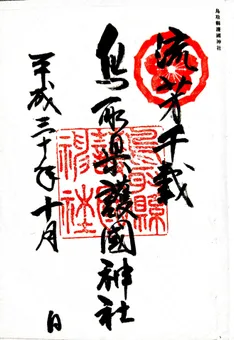 鳥取縣護國神社
流芳千載
鳥取縣護國神社
平成三十年十月 日
鳥取縣護國神社